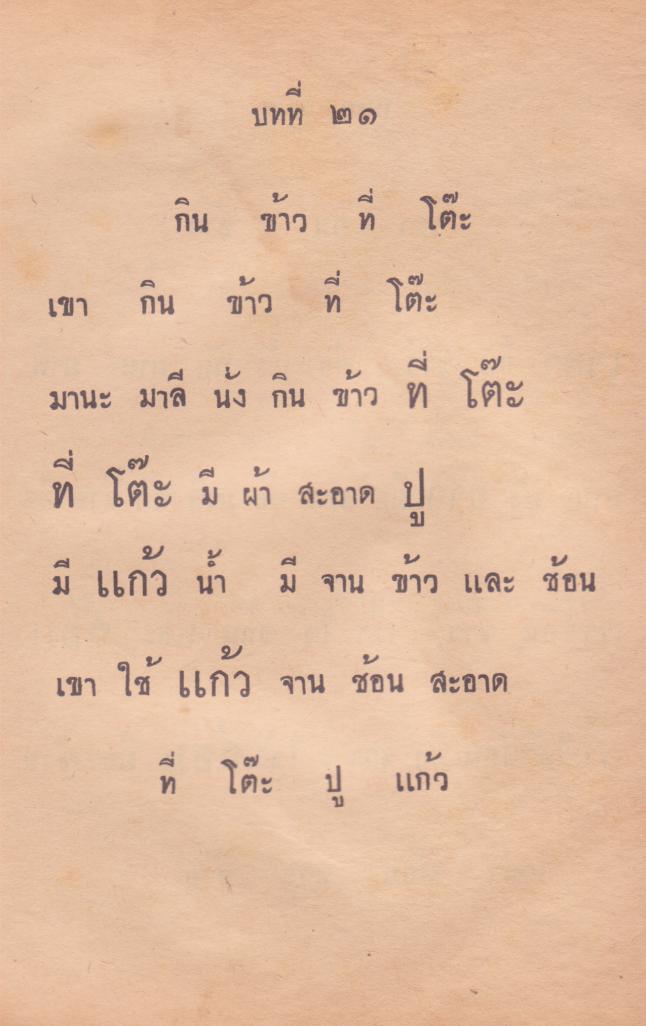 บทที่ ๒๑
กิน ข้าว ที่ โต๊ะ
เขา กิน ข้าว ที่ โต๊ะ
มานะ มาลี นั่ง กิน ข้าว ที่ โต๊ะ
ที่ โต๊ะ มี ผ้า สะอาด ปู
มี แก้ว น้ำ มี จาน ข้าว และ ช้อน
เขา ใช้ แก้ว จาน ช้อน สะอาด
ที่ โต๊ะ ปู แก้ว